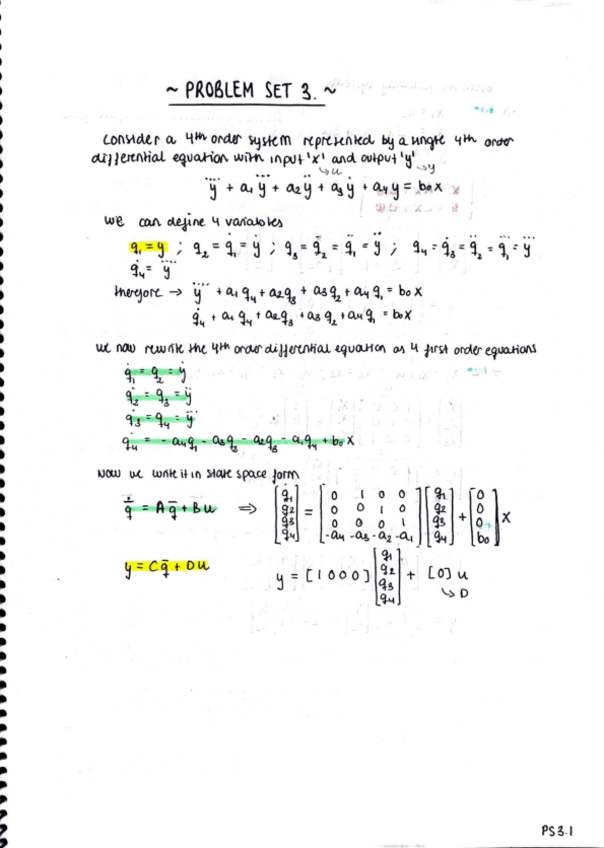 ~ PROBLEM SET 3. ~
Consider a 4th order system represented by a single 4th order
differential equation with input 'x' and output 'y'
↳u ↳y
y⃜ + a₁ y⃛ + a₂ ÿ + a₃ ẏ + a₄ y = b₀ x
we can define 4 variables
q₁ = y ; q₂ = q̇₁ = ẏ ; q₃ = q̇₂ = q̈₁ = ÿ ; q₄ = q̇₃ = q̈₂ = q⃛₁ = y⃛
q̇₄ = y⃜
therefore → y⃜ + a₁ q₄ + a₂ q₃ + a₃ q₂ + a₄ q₁ = b₀ x
q̇₄ + a₁ q₄ + a₂ q₃ + a₃ q₂ + a₄ q₁ = b₀ x
we now rewrite the 4th order differential equation as 4 first order equations
q̇₁ = q₂ = ẏ
q̇₂ = q₃ = ÿ
q̇₃ = q₄ = y⃛
q̇₄ = - a₄ q₁ - a₃ q₂ - a₂ q₃ - a₁ q₄ + b₀ x
Now we write it in state space form
q̄̇ = A q̄ + B̄ u ⟹ [q̇₁ q̇₂ q̇₃ q̇₄] = [0 1 0 0
0 0 1 0
0 0 0 1
-a₄ -a₃ -a₂ -a₁] [q₁ q₂ q₃ q₄] + [0 0 0 b₀] x
y = C q̄ + D u y = [1 0 0 0] [q₁ q₂ q₃ q₄] + [0] u
↳ D
PS 3.1